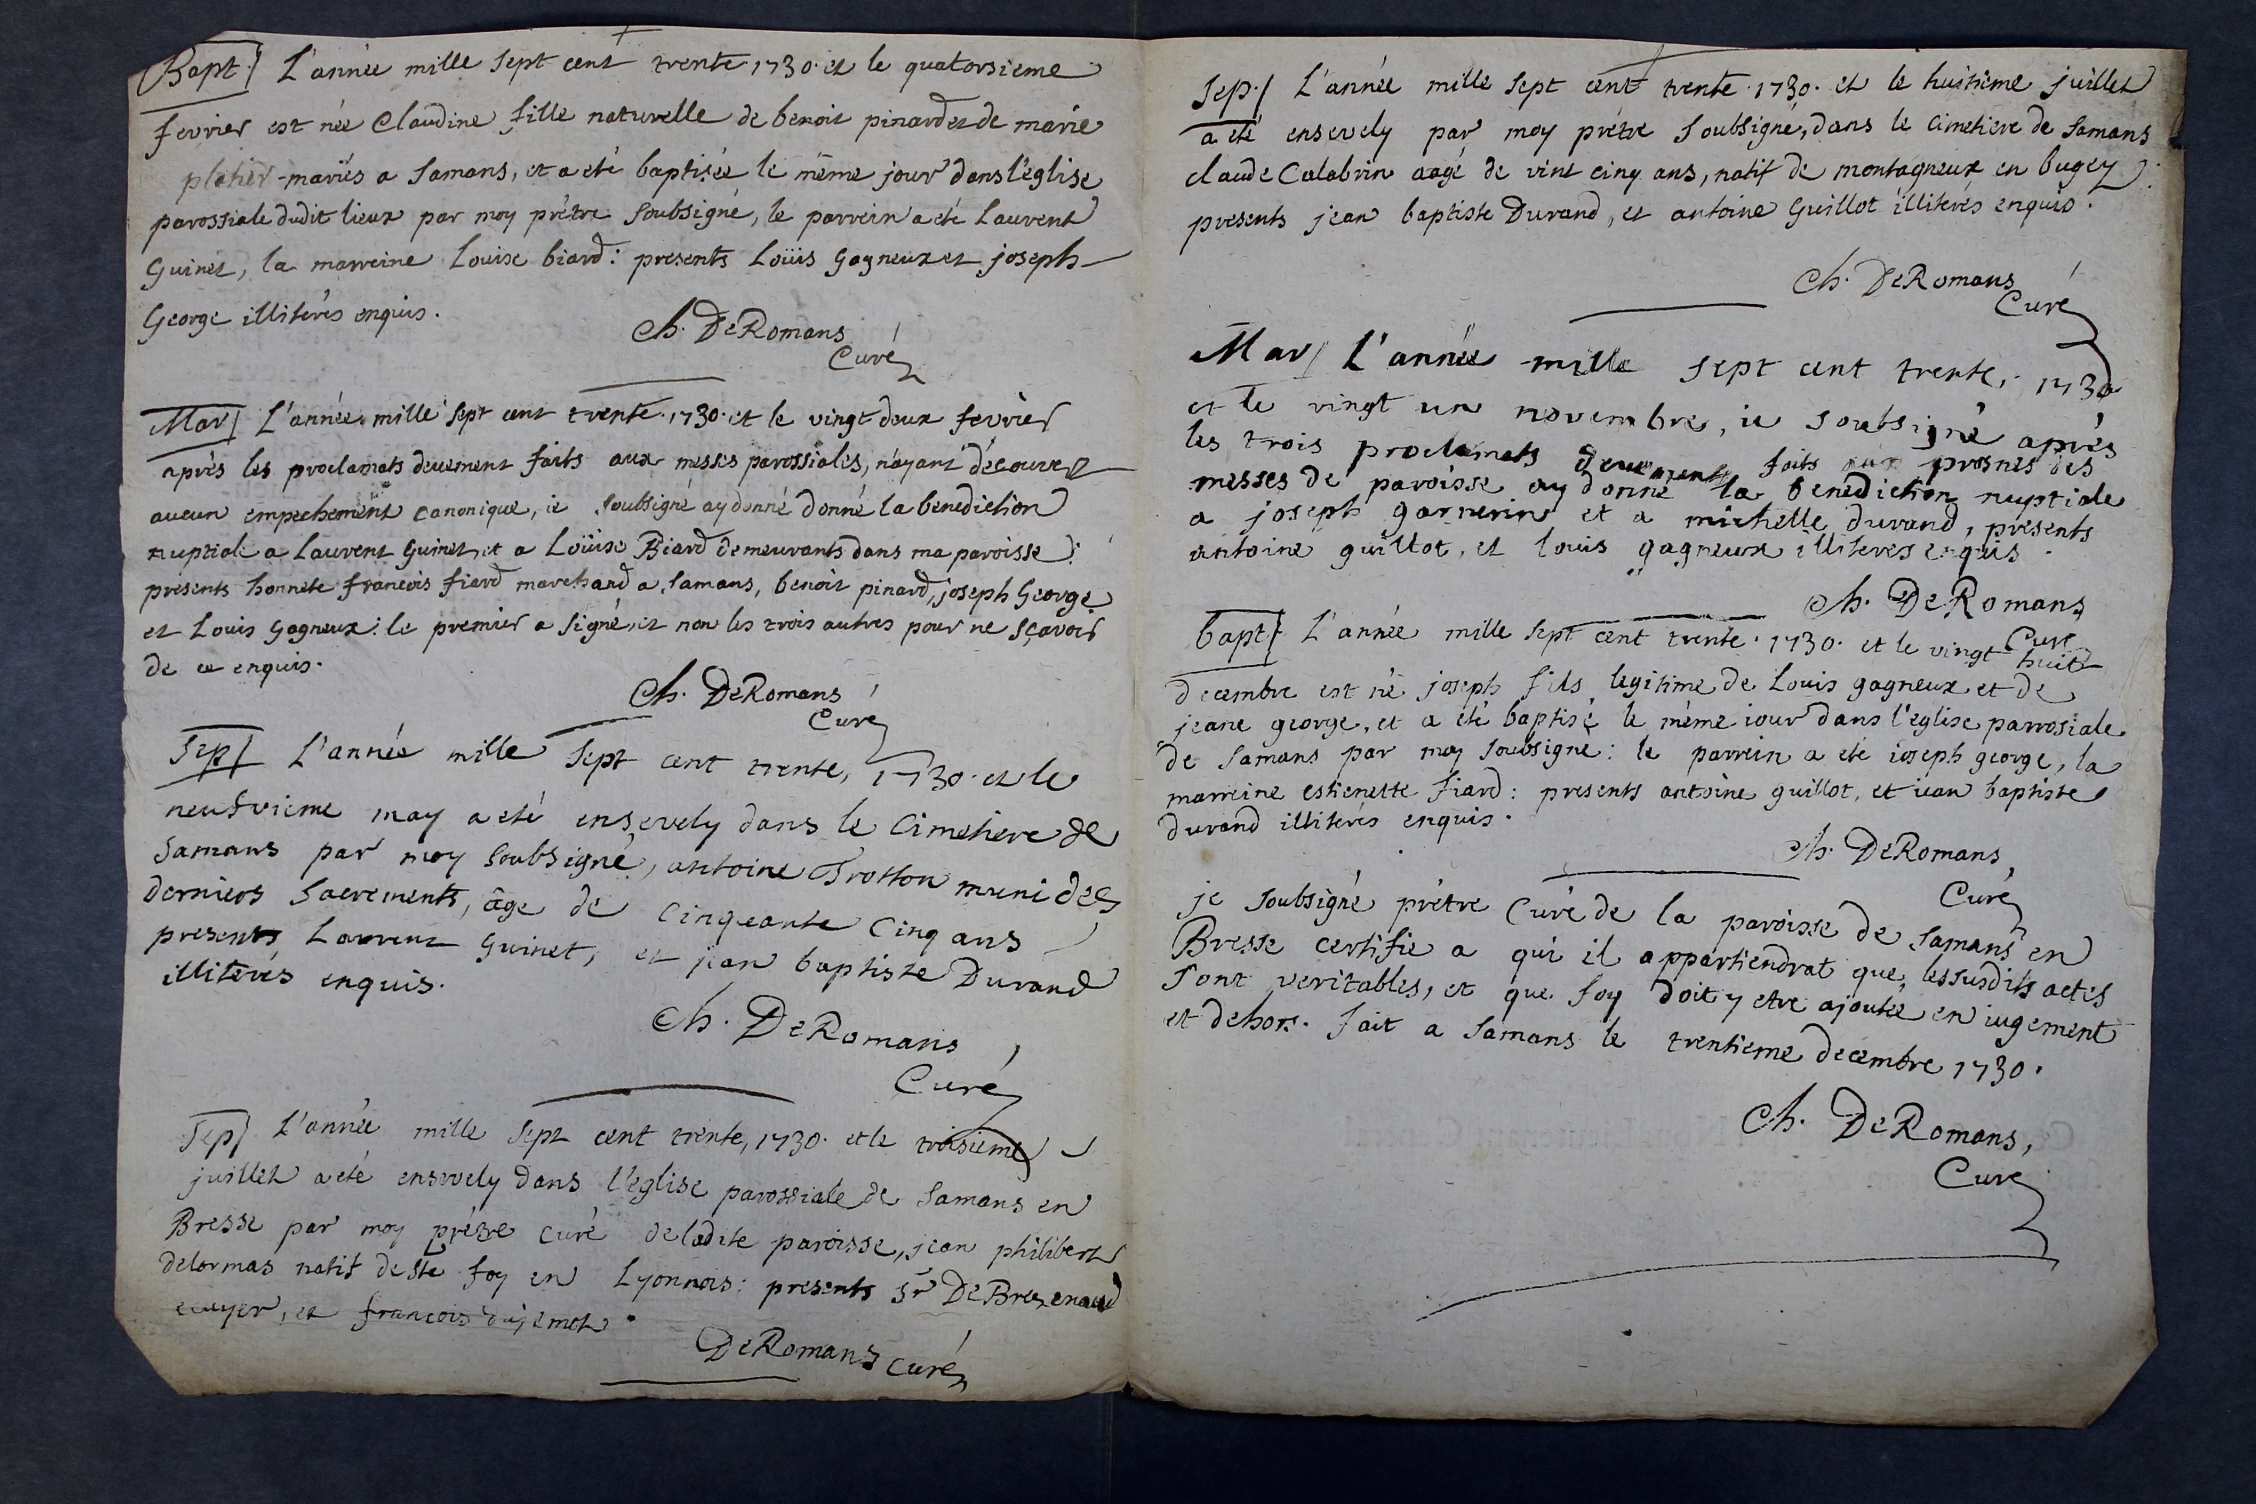 Bapt. L'année mille sept cent trente 1730. et le quatorsieme
fevrier est née Claudine fille naturelle de benoit pinard et de marie
platier mariés a Samans, et a eté baptisée le même jour dans l'eglise
parossiale dudit lieux par moy prétre soubsigné, le parrein a eté Laurent
Guinet, la marreine Louise biard: presents Loüis Gagneux et joseph
George illiterés enquis.
Ch. DeRomans
Curé
Mar L'année mille sept cent trente. 1730. et le vingt deux fevrier
après les proclamats deuement faits aux messes parossiales, n'ayant découvert
aucun empechement canonique, ie soubsigné ay donné donné la benediction
nuptiale a Laurent Guinet et a Loüise Biard demeurants dans ma paroisse:
présents honnete francois fiard marchand a Samans, benoit pinard, joseph George
et Louis Gagneux: le premier a signé, et non les trois autres pour ne sçavoir
de ce enquis.
Ch. DeRomans
Curé
Sep L'année mille sept cent trente, 1730. et le
neufvieme may a eté ensevely dans le Cimetiere de
Samans par moy soubsigné, antoine Trotton muni des
derniers Sacrements, âge de cinqeante cinq ans
presents Laurent Guinet, et jean baptiste Durand
illiterés enquis.
Ch. DeRomans
Curé
Sep L'année mille sept cent trente, 1730. et le troisieme
juillet a eté ensevely dans l'eglise parossiale de Samans en
Bresse par moy prétre curé de ladite paroisse, jean philibert
delormas natif de Ste foy en Lyonnois: presents Sr DeBrezenaud
ecuyer, et francois dujemot.
DeRomans curé
Sep. L'année mille sept cent trente. 1730. et le huitieme juillet
a eté ensevely par moy prétre soubsigné, dans le cimetiere de Samans
claude Calabrin aagé de vint cinq ans, natif de montagneux en bugey
presents jean baptiste Durand, et antoine Guillot illiterés enquis.
Ch. DeRomans
Curé
Mar L'année mille sept cent trente, 1730
et le vingt un novembre, ie soubsigné après
les trois proclamats deuements faits aux prosnes des
messes de paroisse ay donné la benediction nuptiale
a joseph garnerin et a michelle durand, présents
antoine guillot, et louis gagneux illiteres enquis.
Ch. DeRomans
Curé
bapt L'année mille sept cent trente. 1730. et le vingt huit
decembre est né joseph fils legitime de Louis gagneux et de
jeane george, et a eté baptisé le même iour dans l'eglise parrosiale
de Samans par moy soubsigné: le parrein a eté ioseph george, la
marreine estienette fiard: presents antoine guillot, et iean baptiste
durand illiterés enquis.
Ch. DeRomans
Curé
je soubsigné prétre Curé de la paroisse de Samans en
Bresse certifie a qui il appartiendrat que, lessusdits actes
sont veritables, et que foy doit y etre ajoutée en iugement
et dehors. fait a Samans le trentieme decembre 1730.
Ch. DeRomans,
Curé